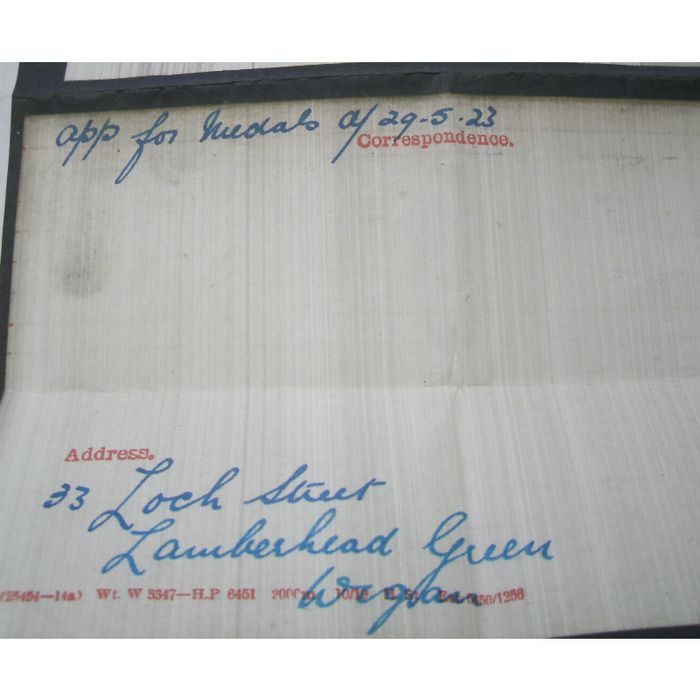 app for Medals d/ 29-5-23
Correspondence.
Address.
33 Loch Street
Lamberhead Green
Wigan
(25454—14a) Wt. W 3347—H.P 6451